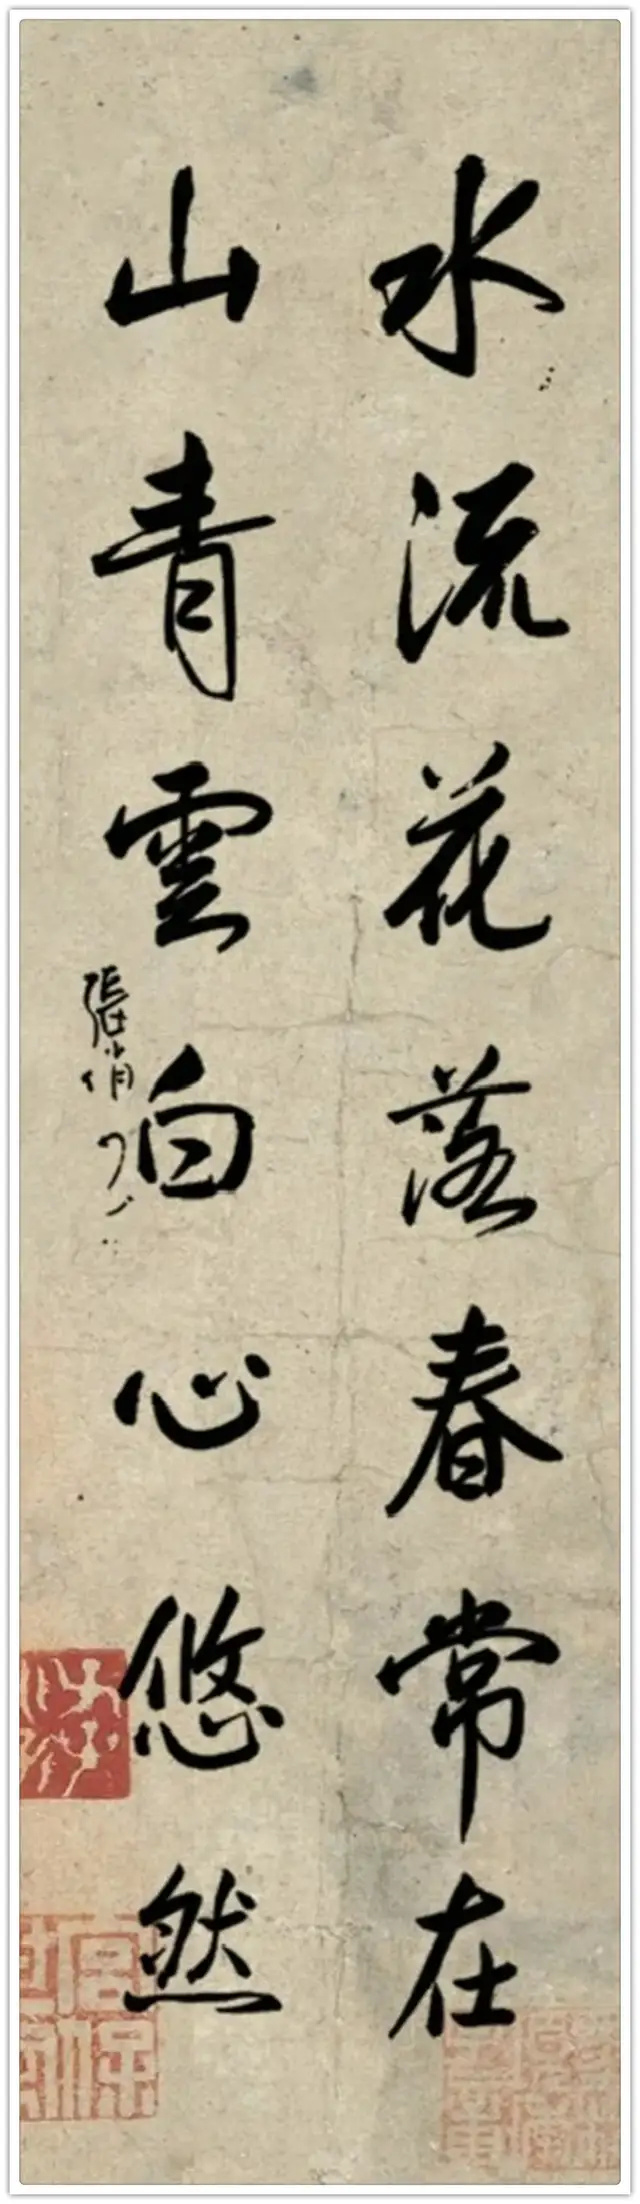 水流花落春常在
山青雲白心悠然